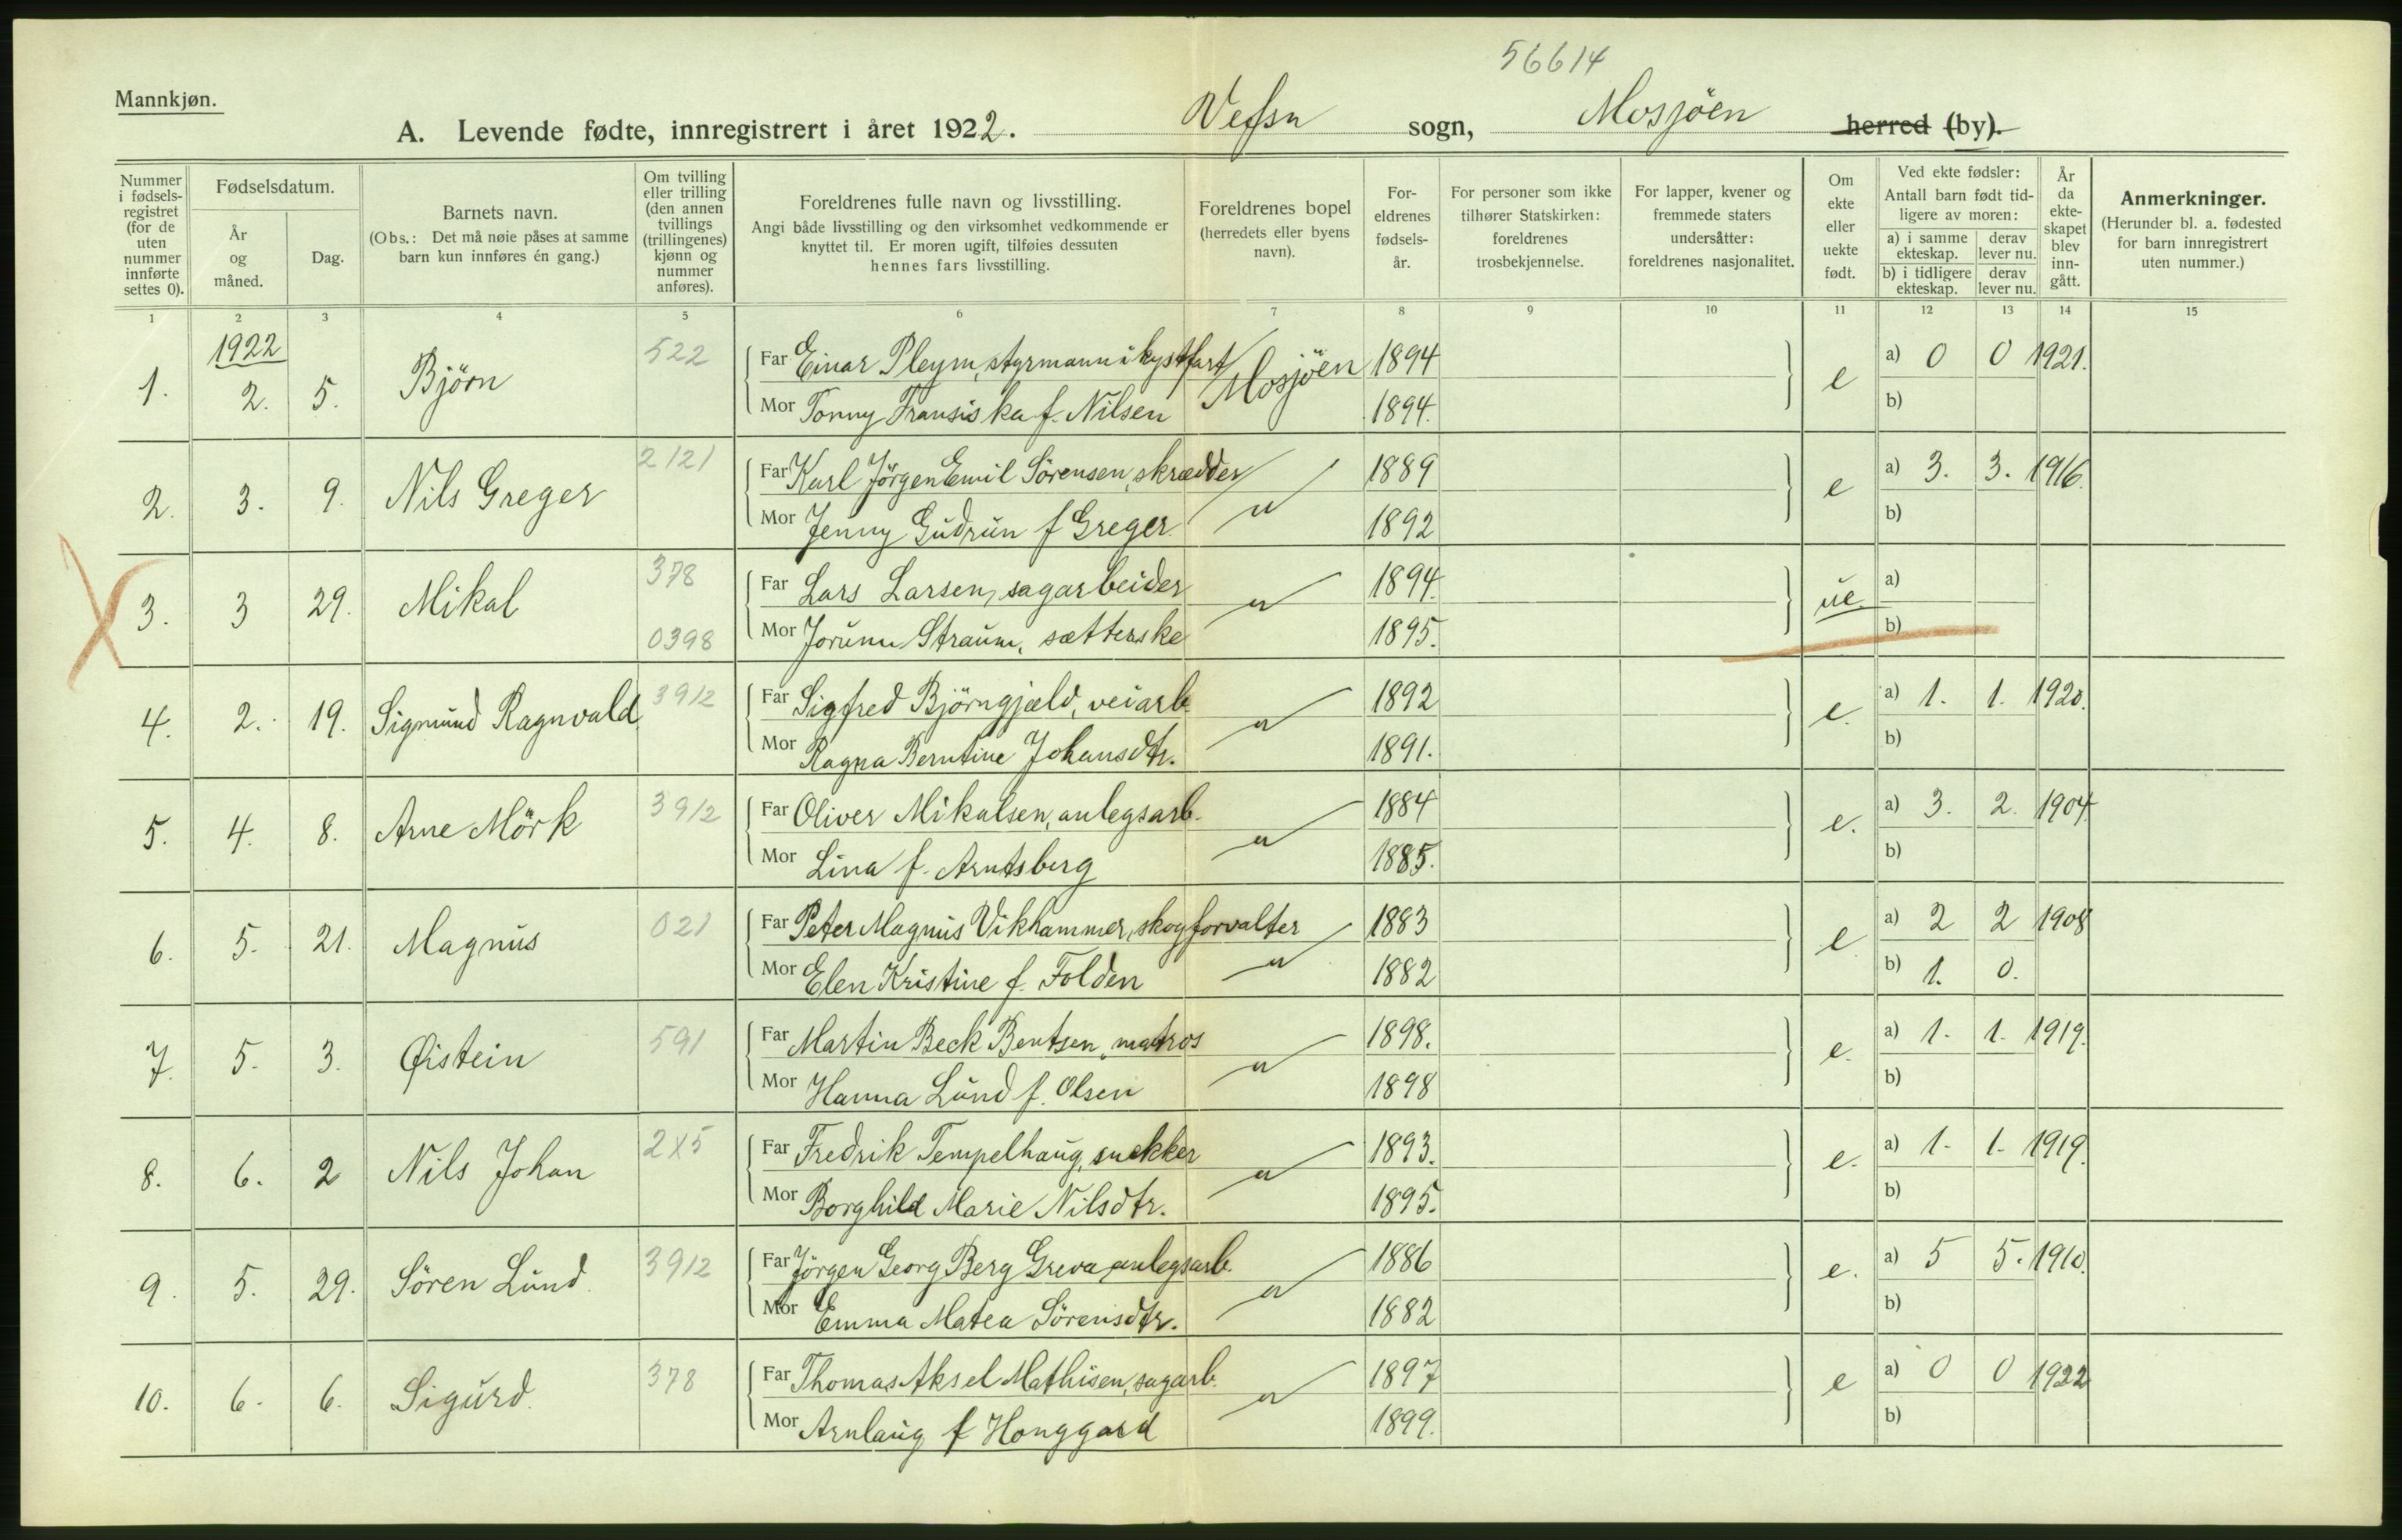 56614
Mannkjøn.
A. Levende fødte, innregistrert i året 1922. Vefsn sogn, Mosjöen herred (by).
Nummer i fødsels-registret (for de uten nummer innførte settes 0).
Fødselsdatum.
År og måned.
Dag.
Barnets navn.
(Obs.: Det må nøie påses at samme barn kun innføres én gang.)
Om tvilling eller trilling (den annen tvillings (trillingenes) kjønn og nummer anføres).
Foreldrenes fulle navn og livsstilling.
Angi både livsstilling og den virksomhet vedkommende er knyttet til. Er moren ugift, tilføies dessuten hennes fars livsstilling.
Foreldrenes bopel (herredets eller byens navn).
For-eldrenes fødsels-år.
For personer som ikke tilhører Statskirken: foreldrenes trosbekjennelse.
For lapper, kvener og fremmede staters undersåtter: foreldrenes nasjonalitet.
Om ekte eller uekte født.
Ved ekte fødsler:
Antall barn født tid-ligere av moren:
a) i samme ekteskap. derav lever nu.
b) i tidligere ekteskap. derav lever nu.
År da ekte-skapet blev inn-gått.
Anmerkninger.
(Herunder bl. a. fødested for barn innregistrert uten nummer.)
1 2 3 4 5 6 7 8 9 10 11 12 13 14 15
1922
1. 2. 5. Björn 522 Far Einar Pleym, styrmann i kystfart Mosjöen 1894 e a) 0 0 1921.
Mor Tonny Fransiska f. Nilsen 1894. b)
2. 3. 9. Nils Greger 2121 Far Karl Jörgen Emil Sörensen, skrædder 1889 e a) 3. 3. 1916.
Mor Jenny Gudrun f Greger. " 1892 b)
3. 3 29. Mikal 378 Far Lars Larsen, sagarbeider " 1894. ue. a)
0398 Mor Jorunn Straum, sætterske 1895. b)
4. 2. 19. Sigmund Ragnvald 3912 Far Sigfred Björngjæld, veiarb. " 1892 e. a) 1. 1. 1920.
Mor Ragna Berntine Johansdtr. 1891. b)
5. 4. 8. Arne Mörk 3912 Far Oliver Mikalsen, anlegsarb. " 1884 e. a) 3. 2. 1904.
Mor Lina f. Arntsberg 1885. b)
6. 5. 21. Magnus 021 Far Peter Magnus Vikhammer, skogforvalter " 1883 e. a) 2 2 1908
Mor Elen Kristine f. Folden 1882 b) 1. 0.
7. 5. 3. Øistein 591 Far Martin Beck Bentsen, matros " 1898. e. a) 1. 1. 1919.
Mor Hanna Lund f. Olsen 1898 b)
8. 6. 2 Nils Johan 2X5 Far Fredrik Tempelhaug, snekker " 1893. e. a) 1. 1. 1919.
Mor Borghild Marie Nilsdtr. 1895. b)
9. 5. 29. Sören Lund 3912 Far Jörgen Georg Berg Greva, anlegsarb. " 1886 e. a) 5 5. 1910.
Mor Emma Matea Sörensdtr. 1882 b)
10. 6. 6. Sigurd 378 Far Thomas Aksel Mathisen, sagarb. " 1897 e a) 0 0 1922
Mor Arnlaug f Honggard 1899. b)